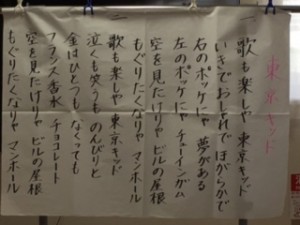 東京キッド
一 歌も楽しや 東京キッド
いきでおしゃれで ほがらかで
右のポッケにゃ 夢がある
左のポッケにゃ チュウインガム
空を見たけりゃ ビルの屋根
もぐりたくなりゃ マンホール
二 歌も楽しや 東京キッド
泣くも笑うも のんびりと
金はひとつも なくっても
フランス香水 チョコレート
空を見たけりゃ ビルの屋根
もぐりたくなりゃ マンホール